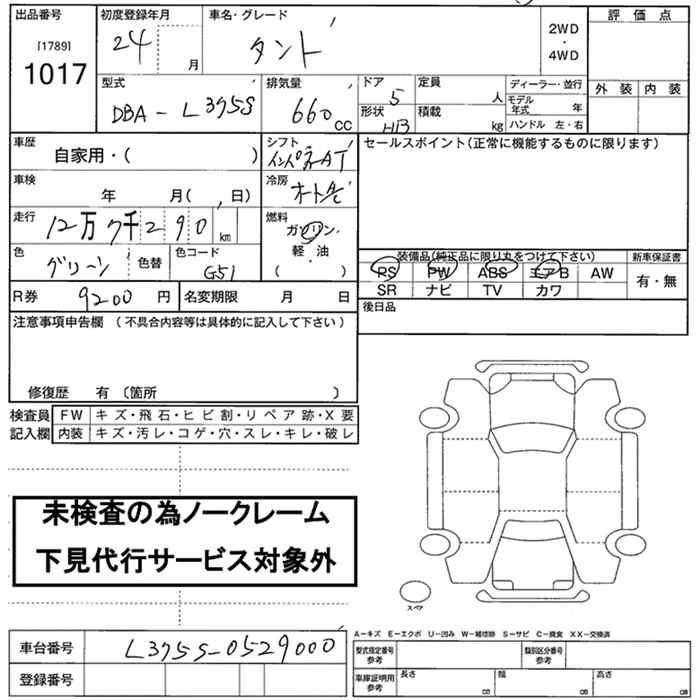 出品番号
[1789]
1017
初度登録年月
24
月
車名・グレード
タント
2WD
・
4WD
評 価 点
外 装 内 装
型式
DBA - L375S
排気量
660 CC
ドア
5
形状
H/B
定員
人
積載
kg
ディーラー・並行
モデル年式 年
ハンドル 左・右
車歴
自家用・( )
シフト
インパネAT
セールスポイント(正常に機能するものに限ります)
車検
年 月( , 日)
冷房
オートA/C
走行
12万7千290 km
燃料
ガソリン・
軽・油
( )
色
グリーン
色替
色コード
G51
装備品(純正品に限り丸をつけて下さい)
PS PW ABS エアB AW
SR ナビ TV カワ
新車保証書
有・無
R券
9200 円
名変期限 月 日
後日品
注意事項申告欄 (不具合内容等は具体的に記入して下さい)
修復歴 有 〔箇所 〕
検査員
記入欄
FW キズ・飛石・ヒビ割・リペア跡・X要
内装 キズ・汚レ・コゲ・穴・スレ・キレ・破レ
未検査の為ノークレーム
下見代行サービス対象外
スペア
A-キズ E-エクボ U-凹み W-補修跡 S-サビ C-腐食 XX-交換済
車台番号
L375S-0529000
登録番号
型式指定番号
参考
類別区分番号
参考
車庫証明用
参考
長さ cm
幅 cm
高さ cm